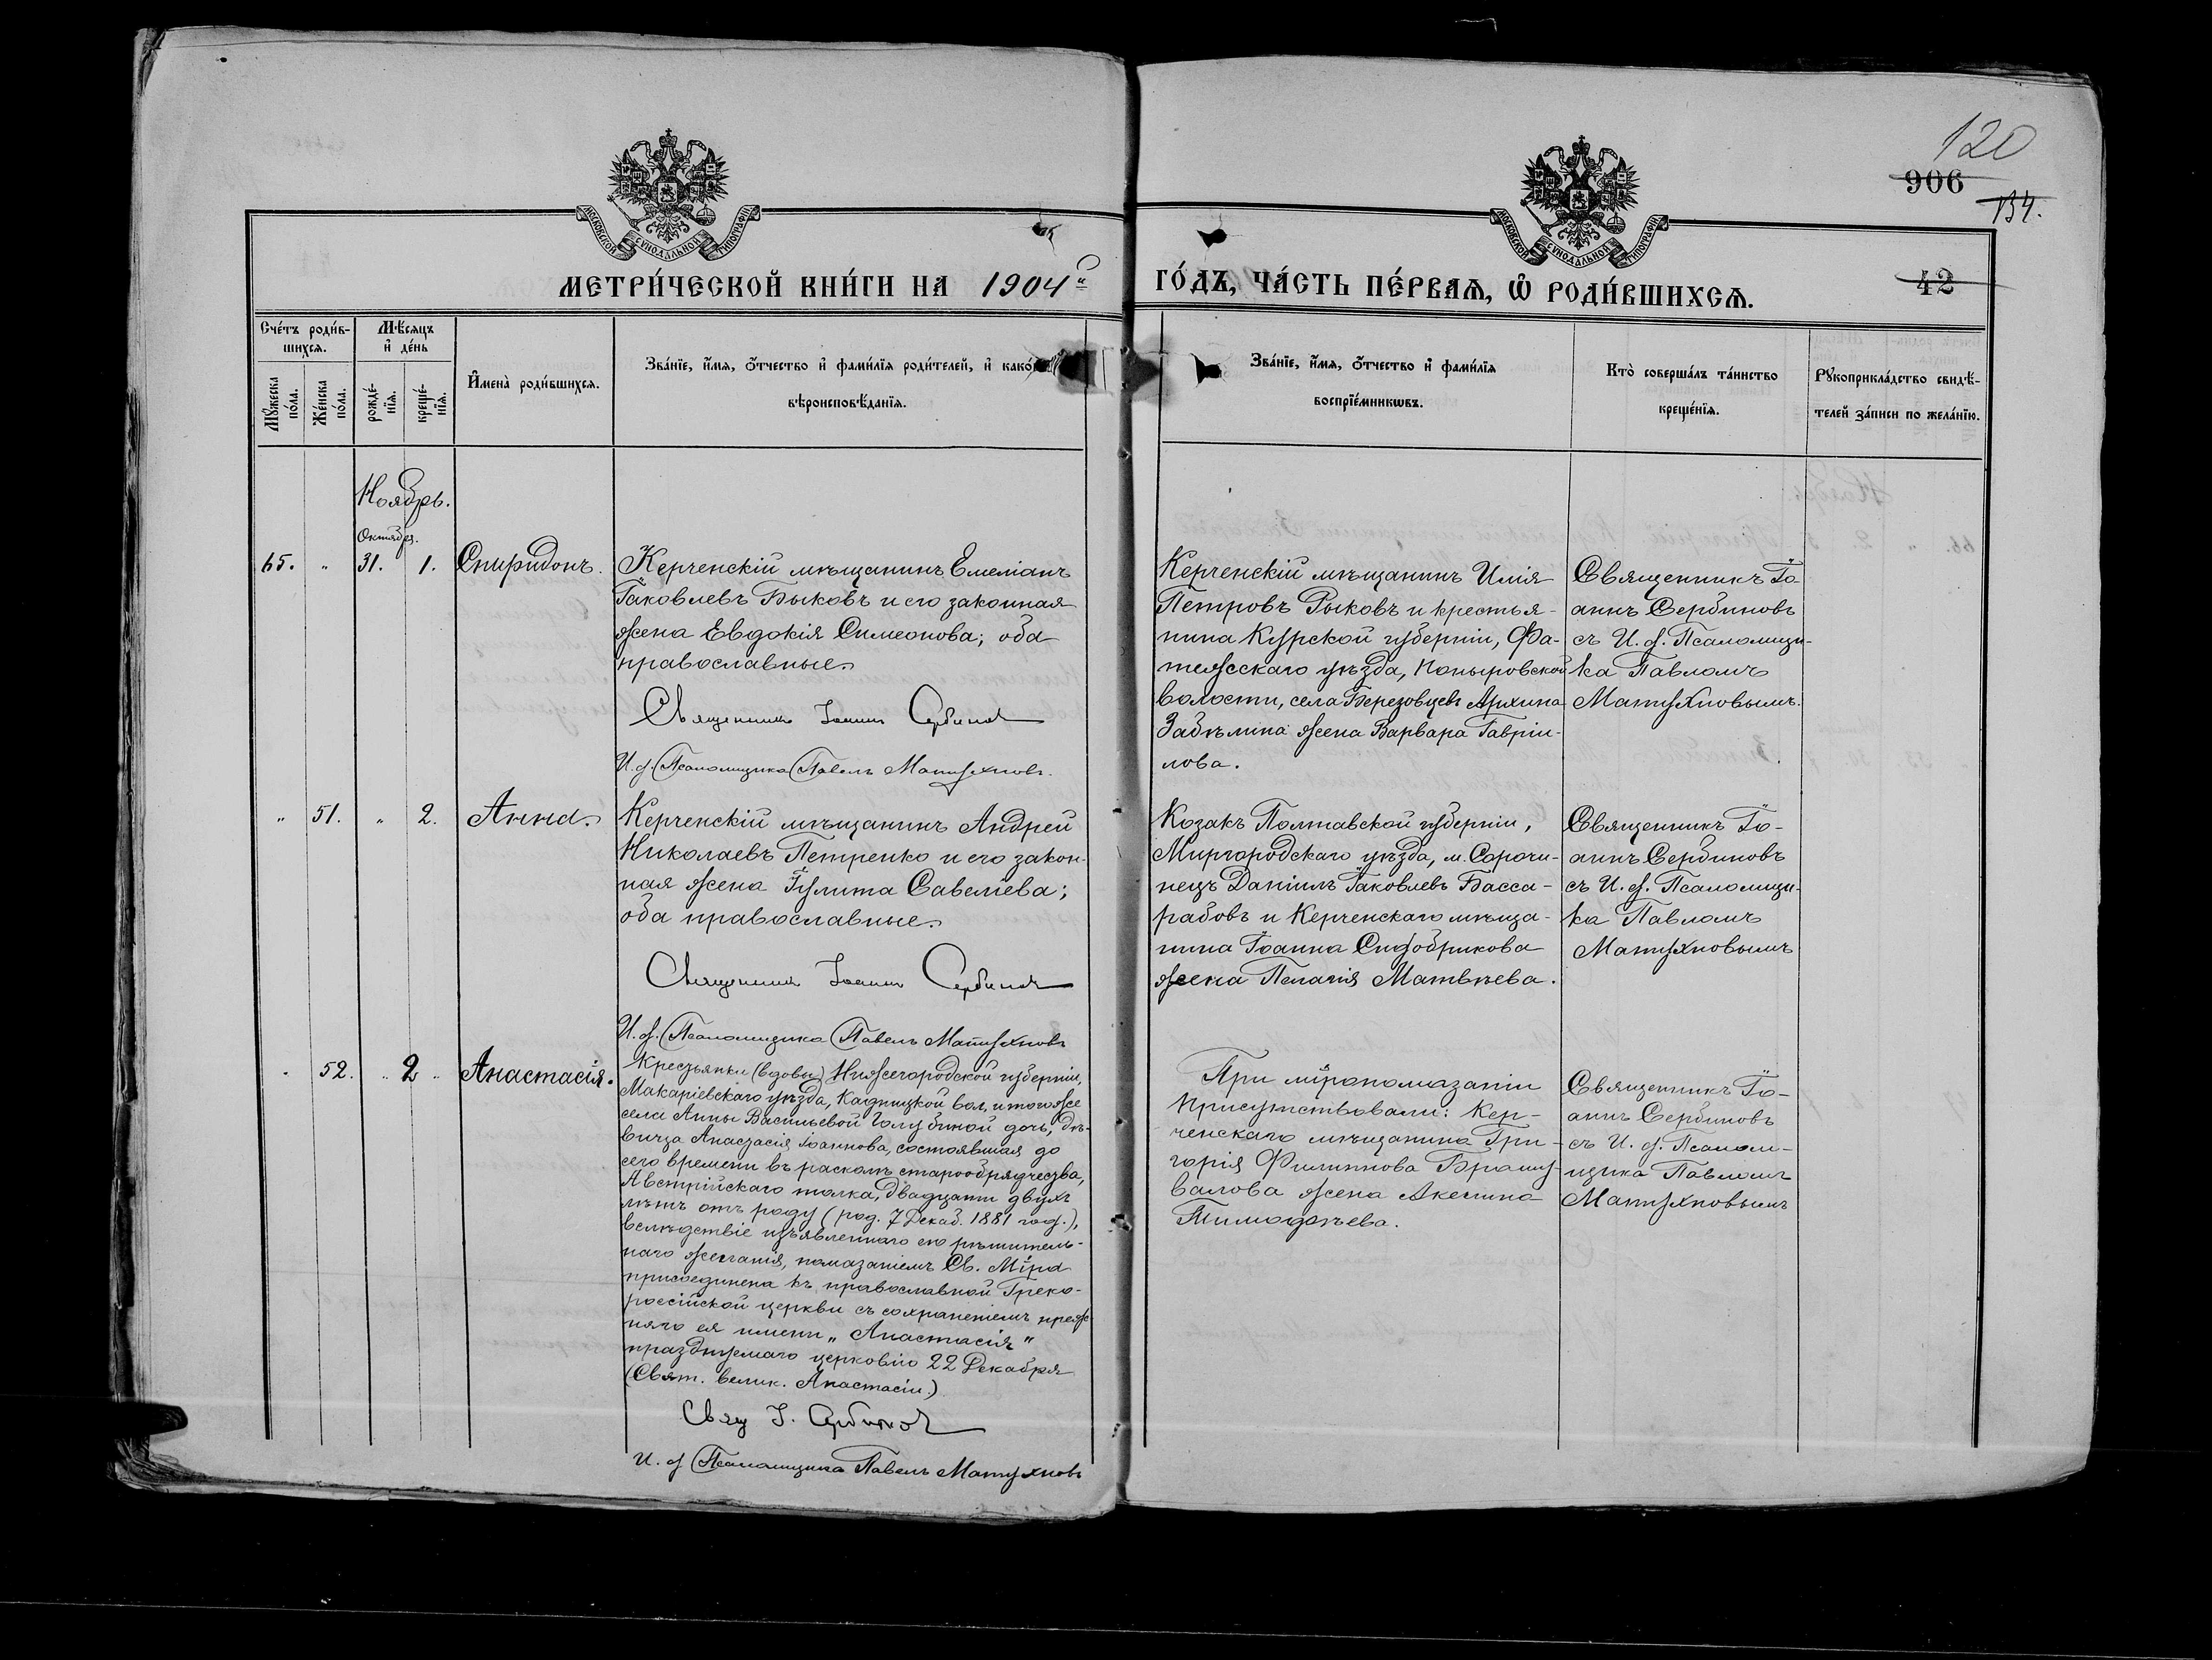 120
906
134.
МОСКОВСКОЙ СѴНОДАЛЬНОЙ ТИПОГРАФІИ
МОСКОВСКОЙ СѴНОДАЛЬНОЙ ТИПОГРАФІИ
МЕТРИ́ЧЕСКОЙ КНИ́ГИ НА 1904й
ГО́ДЪ, ЧА́СТЬ ПЕ́РВАѦ, Ѽ РОДИ́ВШИХСѦ.
42
Сче́тъ роди́в-
шихсѧ.
Мѣ́сяцъ
и҆ де́нь
Мꙋ́жеска
по́ла.
Же́нска
по́ла.
рожде́-
нїѧ.
креще́-
нїѧ.
И҆мена̀ роди́вшихсѧ.
Зва́нїе, и҆́мѧ, ѻ҆́тчество и҆ фами́лїѧ роди́телей, и҆ како́
вѣроисповѣ́данїѧ.
Зва́нїе, и҆́мѧ, ѻ҆́тчество и҆ фами́лїѧ
воспрїе́мникѡвъ.
Кто̀ соверша́лъ та́инство
креще́нїѧ.
Рꙋкоприкла́дство свидѣ́-
телей за́писи по жела́нїю.
Ноябрь.
Октября.
65. " 31. 1. Спиридонъ.
Керченскій мѣщанинъ Емеліанъ
Іаковлевъ Быковъ и его законная
жена Евдокія Симеонова; оба
православные.
Священникъ Іоаннъ Сербиновъ
И. д. Псаломщика Павелъ Матужновъ.
Керченскій мѣщанинъ Илія
Петровъ Рыковъ и крестья-
нина Курской губерніи, Фа-
тежскаго уѣзда, Поныровской
волости, села Березовцевъ Архипа
Забѣлина жена Варвара Гаврии-
лова.
Священникъ Іо-
аннъ Сербиновъ
съ И. д. Псаломщи-
ка Павломъ
Матужновымъ.
" 51. " 2. Анна.
Керченскій мѣщанинъ Андрей
Николаевъ Петренко и его закон-
ная жена Іулита Савеліева;
оба православные.
Священникъ Іоаннъ Сербиновъ
И. д. Псаломщика Павелъ Матужновъ
Козакъ Полтавской губерніи,
Миргородскаго уѣзда, м. Сорочи-
нецъ Даніилъ Іаковлевъ Басса-
рабовъ и Керченскаго мѣща-
нина Іоанна
жена Пелагія Матвѣева.
Священникъ Іо-
аннъ Сербиновъ
съ И. д. Псаломщи-
ка Павломъ
Матужновымъ
" 52. " 2 " Анастасія.
Крестьянки (вдовы) Нижегородской губерніи,
Макаріевскаго уѣзда, Кадницкой вол. и того же
села Анны Васильевой Голубиной дочь, дѣ-
вица Анастасія Іоаннова, состоявшая до
сего времени въ расколѣ старообрядчества,
Австрійскаго толка, двадцати двухъ
лѣтъ отъ роду (род. 7 Декаб. 1881 год.),
вслѣдствіе изъявленнаго ею рѣшитель-
наго желанія, помазаніемъ Св. Мѵра
присоединена къ православной Греко-
россійской церкви съ сохраненіемъ преж-
няго ея имени „Анастасія"
празднуемаго церковію 22 Декабря
(Свят. велик. Анастасіи.)
Свящ І. Сербиновъ
И. д Псаломщика Павелъ Матужновъ
При мѵропомазаніи
присутствовали: Кер-
ченскаго мѣщанина Гри-
горія Филиппова
жена Акилина
Тимофѣева.
Священникъ Іо-
аннъ Сербиновъ
съ И. д. Псалом-
щика Павломъ
Матужновымъ